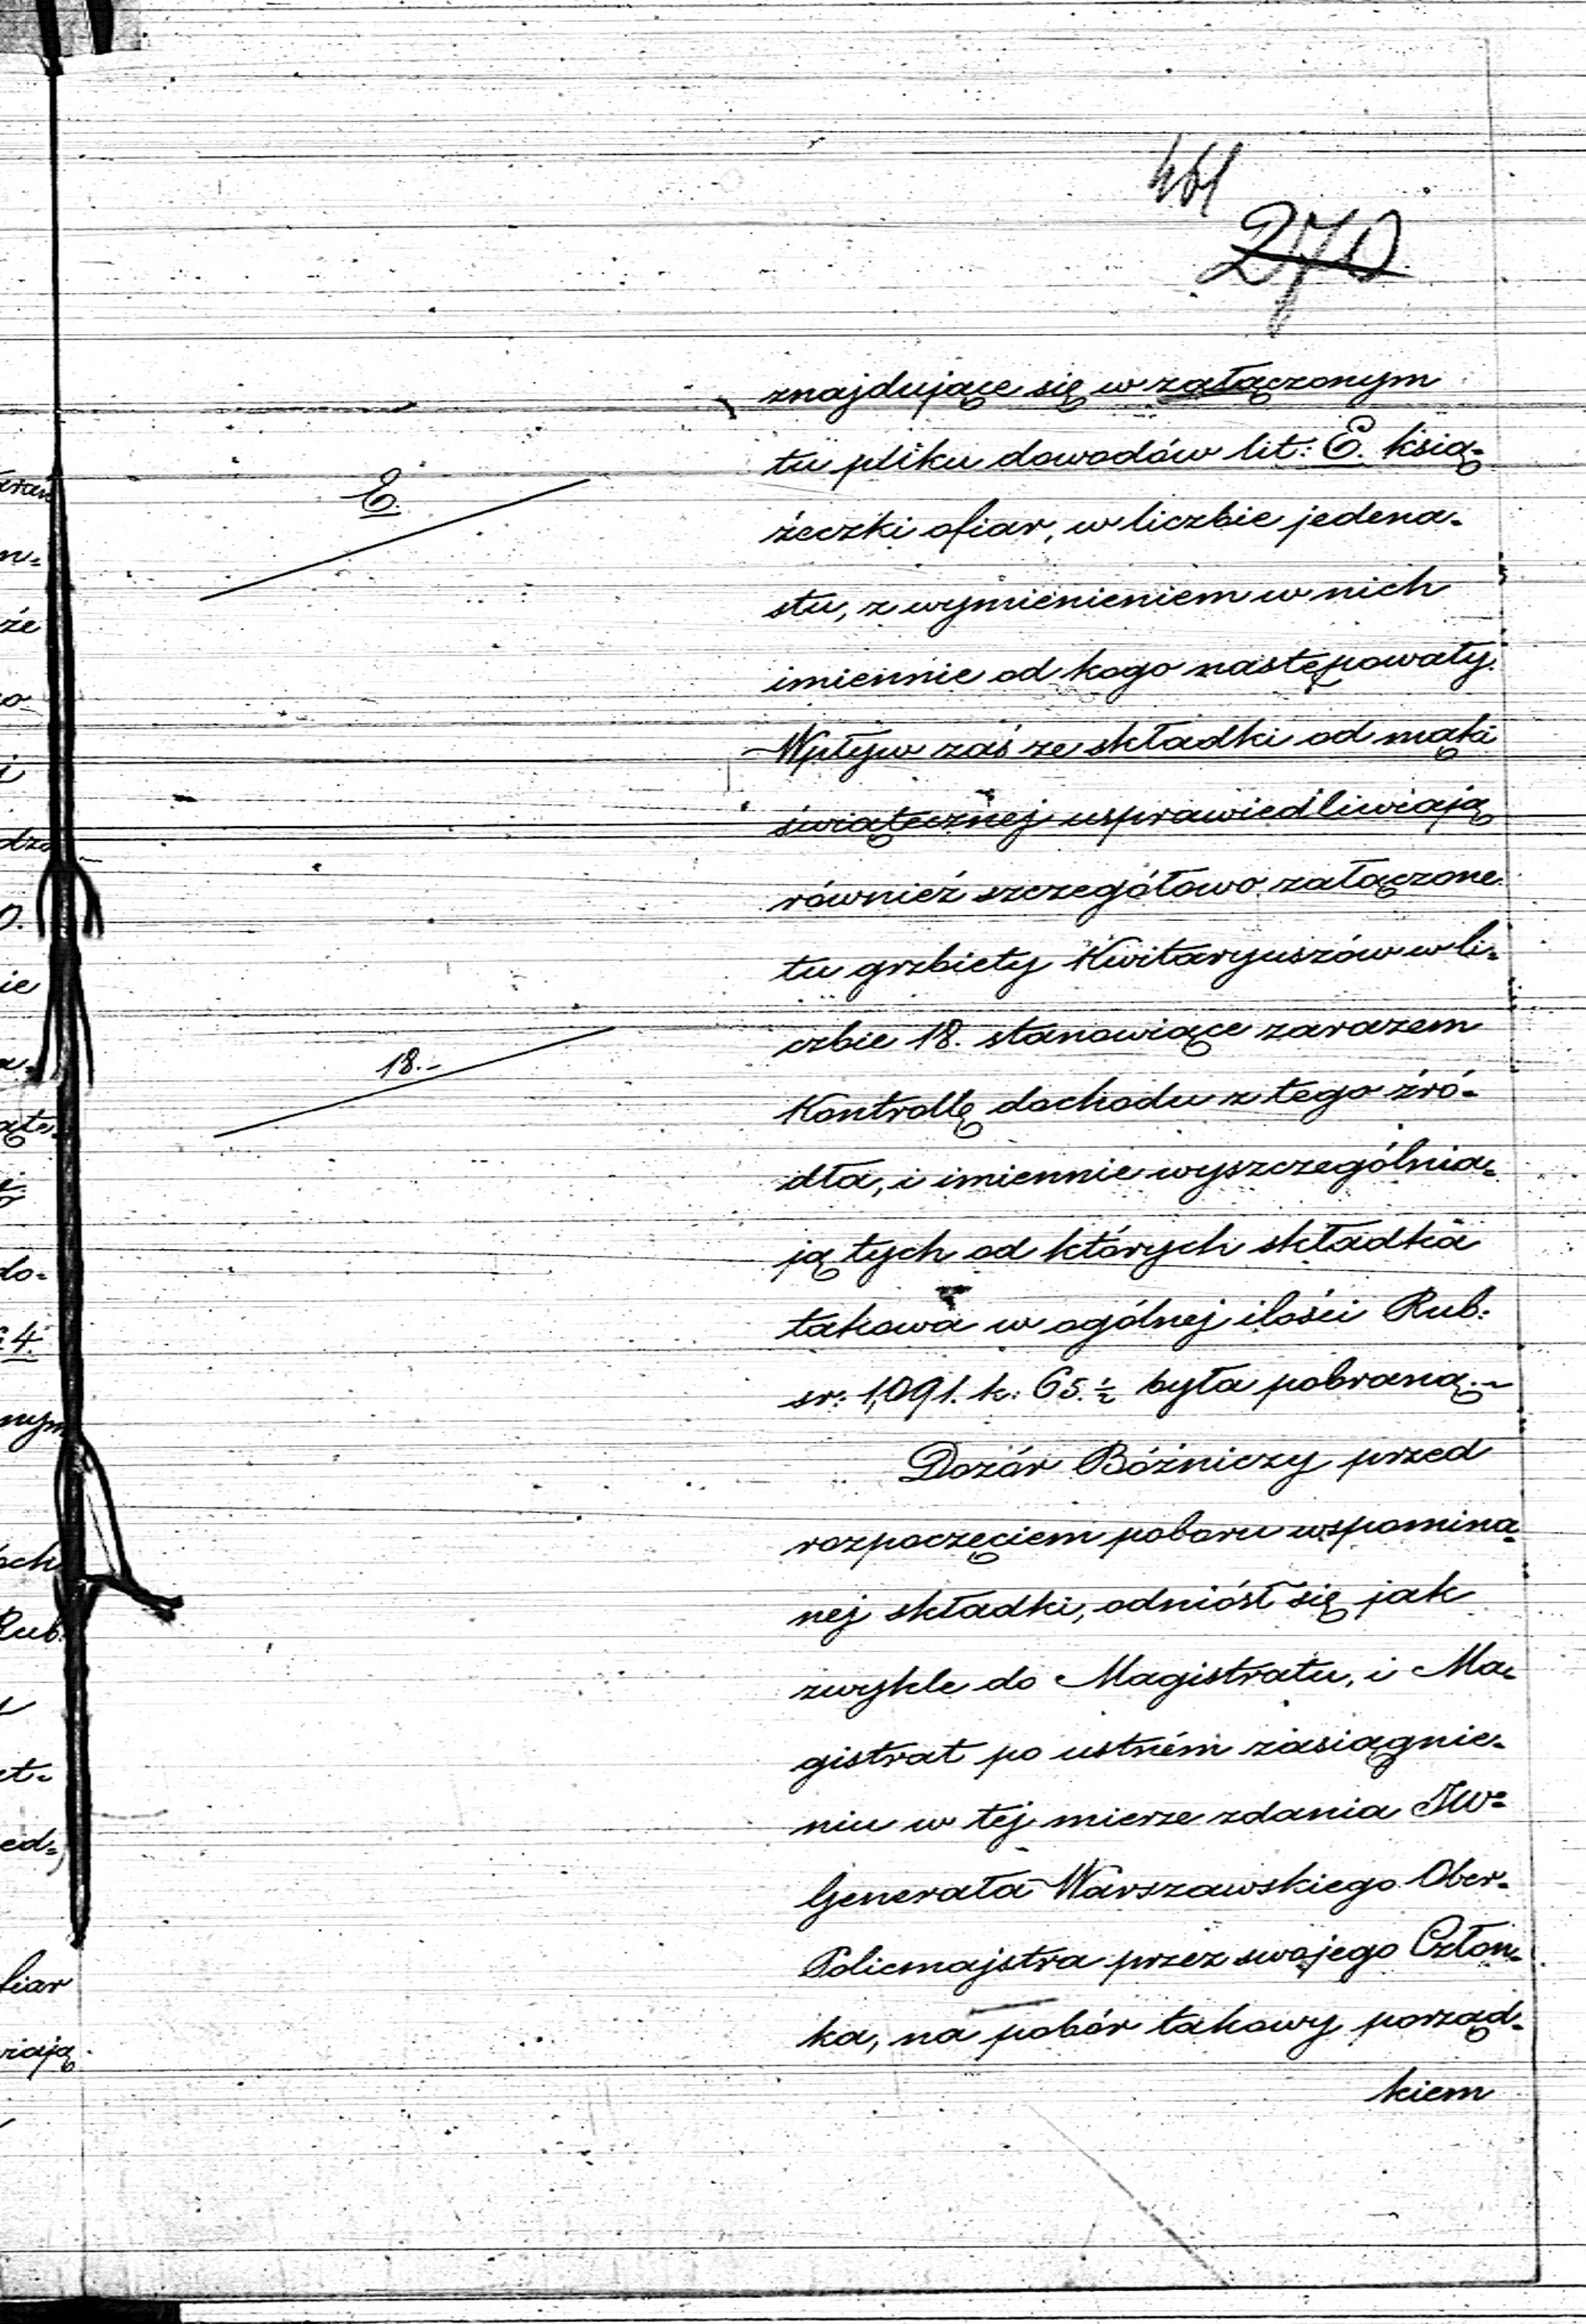 270
znajdujące się w załączonym
tu pliku dowodów lit: E. ksią-
E.
żeczki ofiar, w liczbie jedena-
stu, z wymienieniem w nich
imiennie od kogo następowały.
Wpływ zaś ze składki od mąki
świątecznej usprawiedliwiają
również szczegółowo załączone
tu grzbiety Kwitaryuszów w li-
czbie 18. stanowiące zarazem
18.-
Kontrollę dochodu z tego źró-
dła, i imiennie wyszczególnia-
ją tych od których składka
takowa w ogólnej ilości Rub:
sr: 1,091. k: 65.½ była pobraną.-
Dozór Bóżniczy przed
rozpoczęciem poboru wspomina-
nej składki, odniósł się jak
zwykle do Magistratu, i Ma-
gistrat po ustném zasiągnie-
niu w tej mierze zdania JW-
Generała Warszawskiego Ober-
Policmajstra przez swojego Człon-
ka, na pobór takowy porząd-
kiem